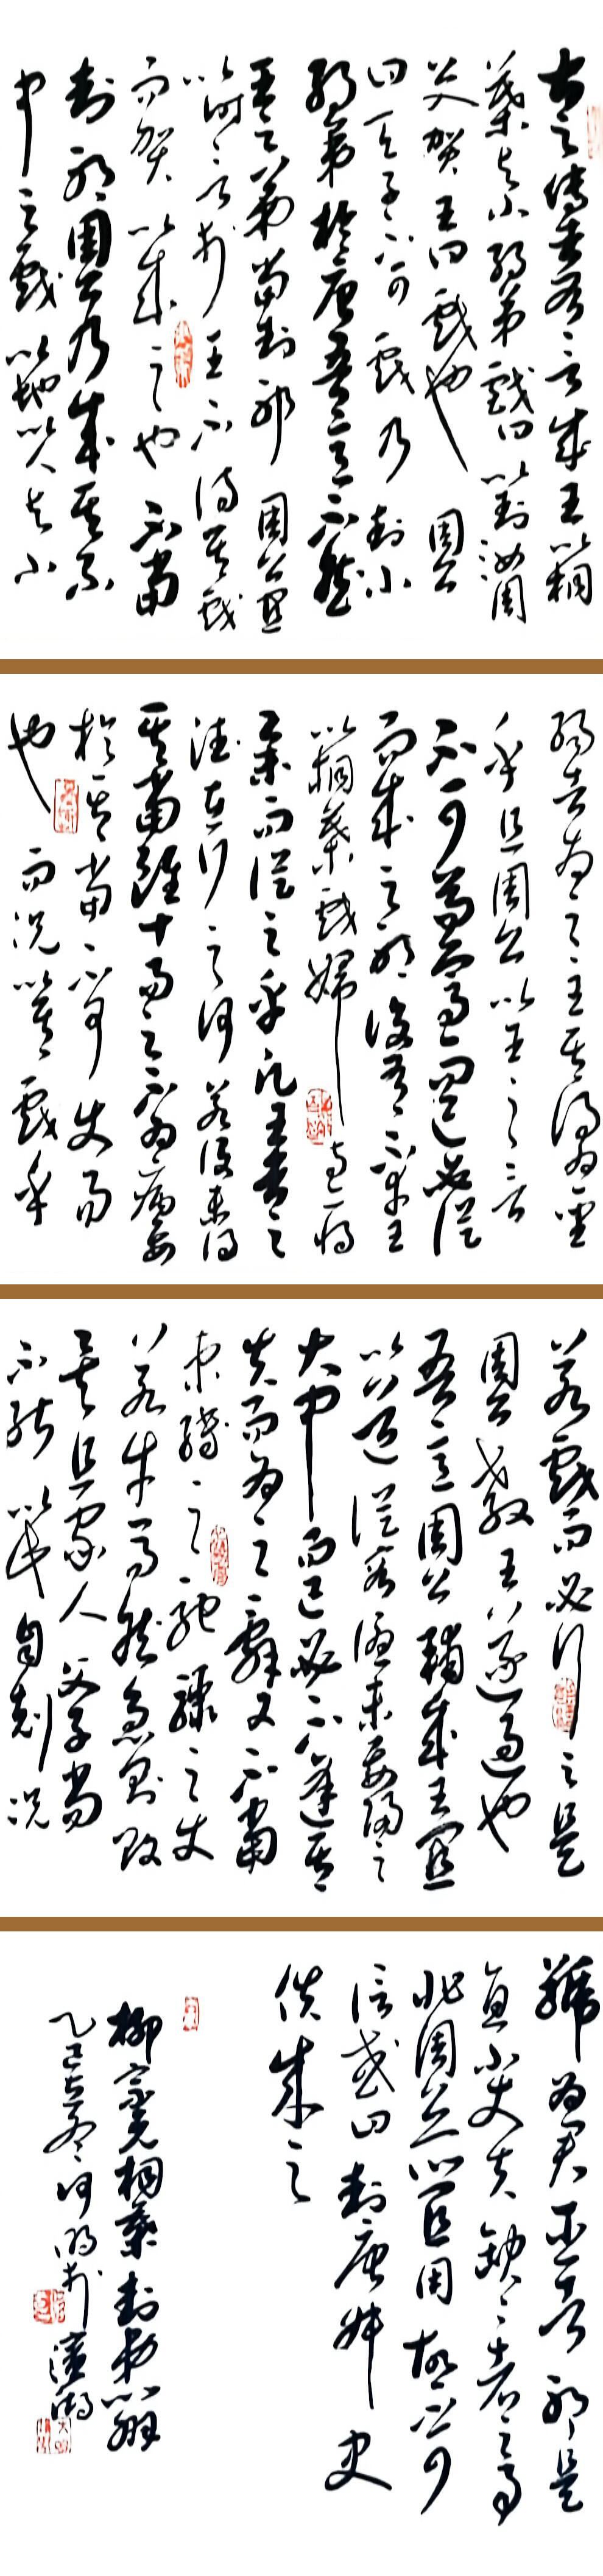 古之傳者有言成王以桐
葉與小弱弟戲曰以封汝周
公入賀王曰戲也周公
曰天子不可戲乃封小
弱弟於唐吾意不然
王之弟當封邪周公宜
以時言於王不待其戲
而賀以成之也不當
封邪周公乃成其不
中之戲以地以人與小
弱者為之主其得為聖
乎且周公以王之言
不可苟焉而已必從
而成之邪設有不幸王
以桐葉戲婦寺亦將
舉而從之乎凡王者之
德在行之何若設未得
其當雖十易之不為病要
於其當不可使易
也而況以其戲乎
若戲而必行之是
周公教王遂過也
吾意周公輔成王宜
以道從容優樂要歸之
大中而已必不逢其
失而為之辭又不當
束縛之馳驟之使
若牛馬然急則敗
矣且家人父子尚
不能以此自克況
號為君臣者邪是
直小丈夫缺缺者之事
非周公所宜用故不可
信或曰封唐叔史
佚成之
柳宗元桐葉封弟辨
乙巳